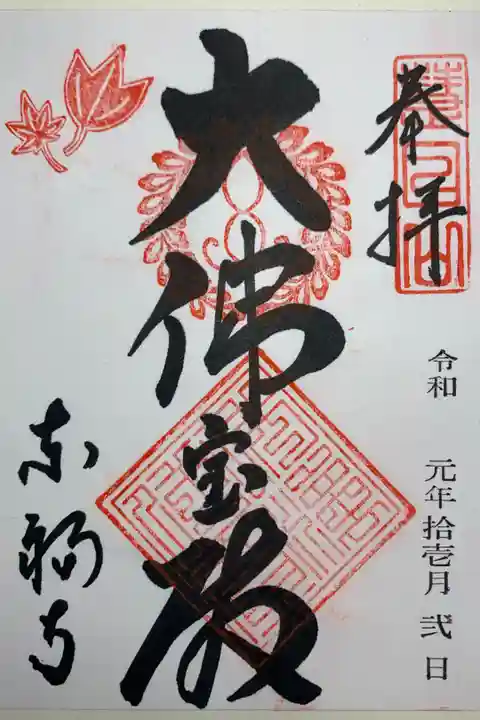 奉拝
令和 元年拾壱月弐日
大佛宝殿
東福寺